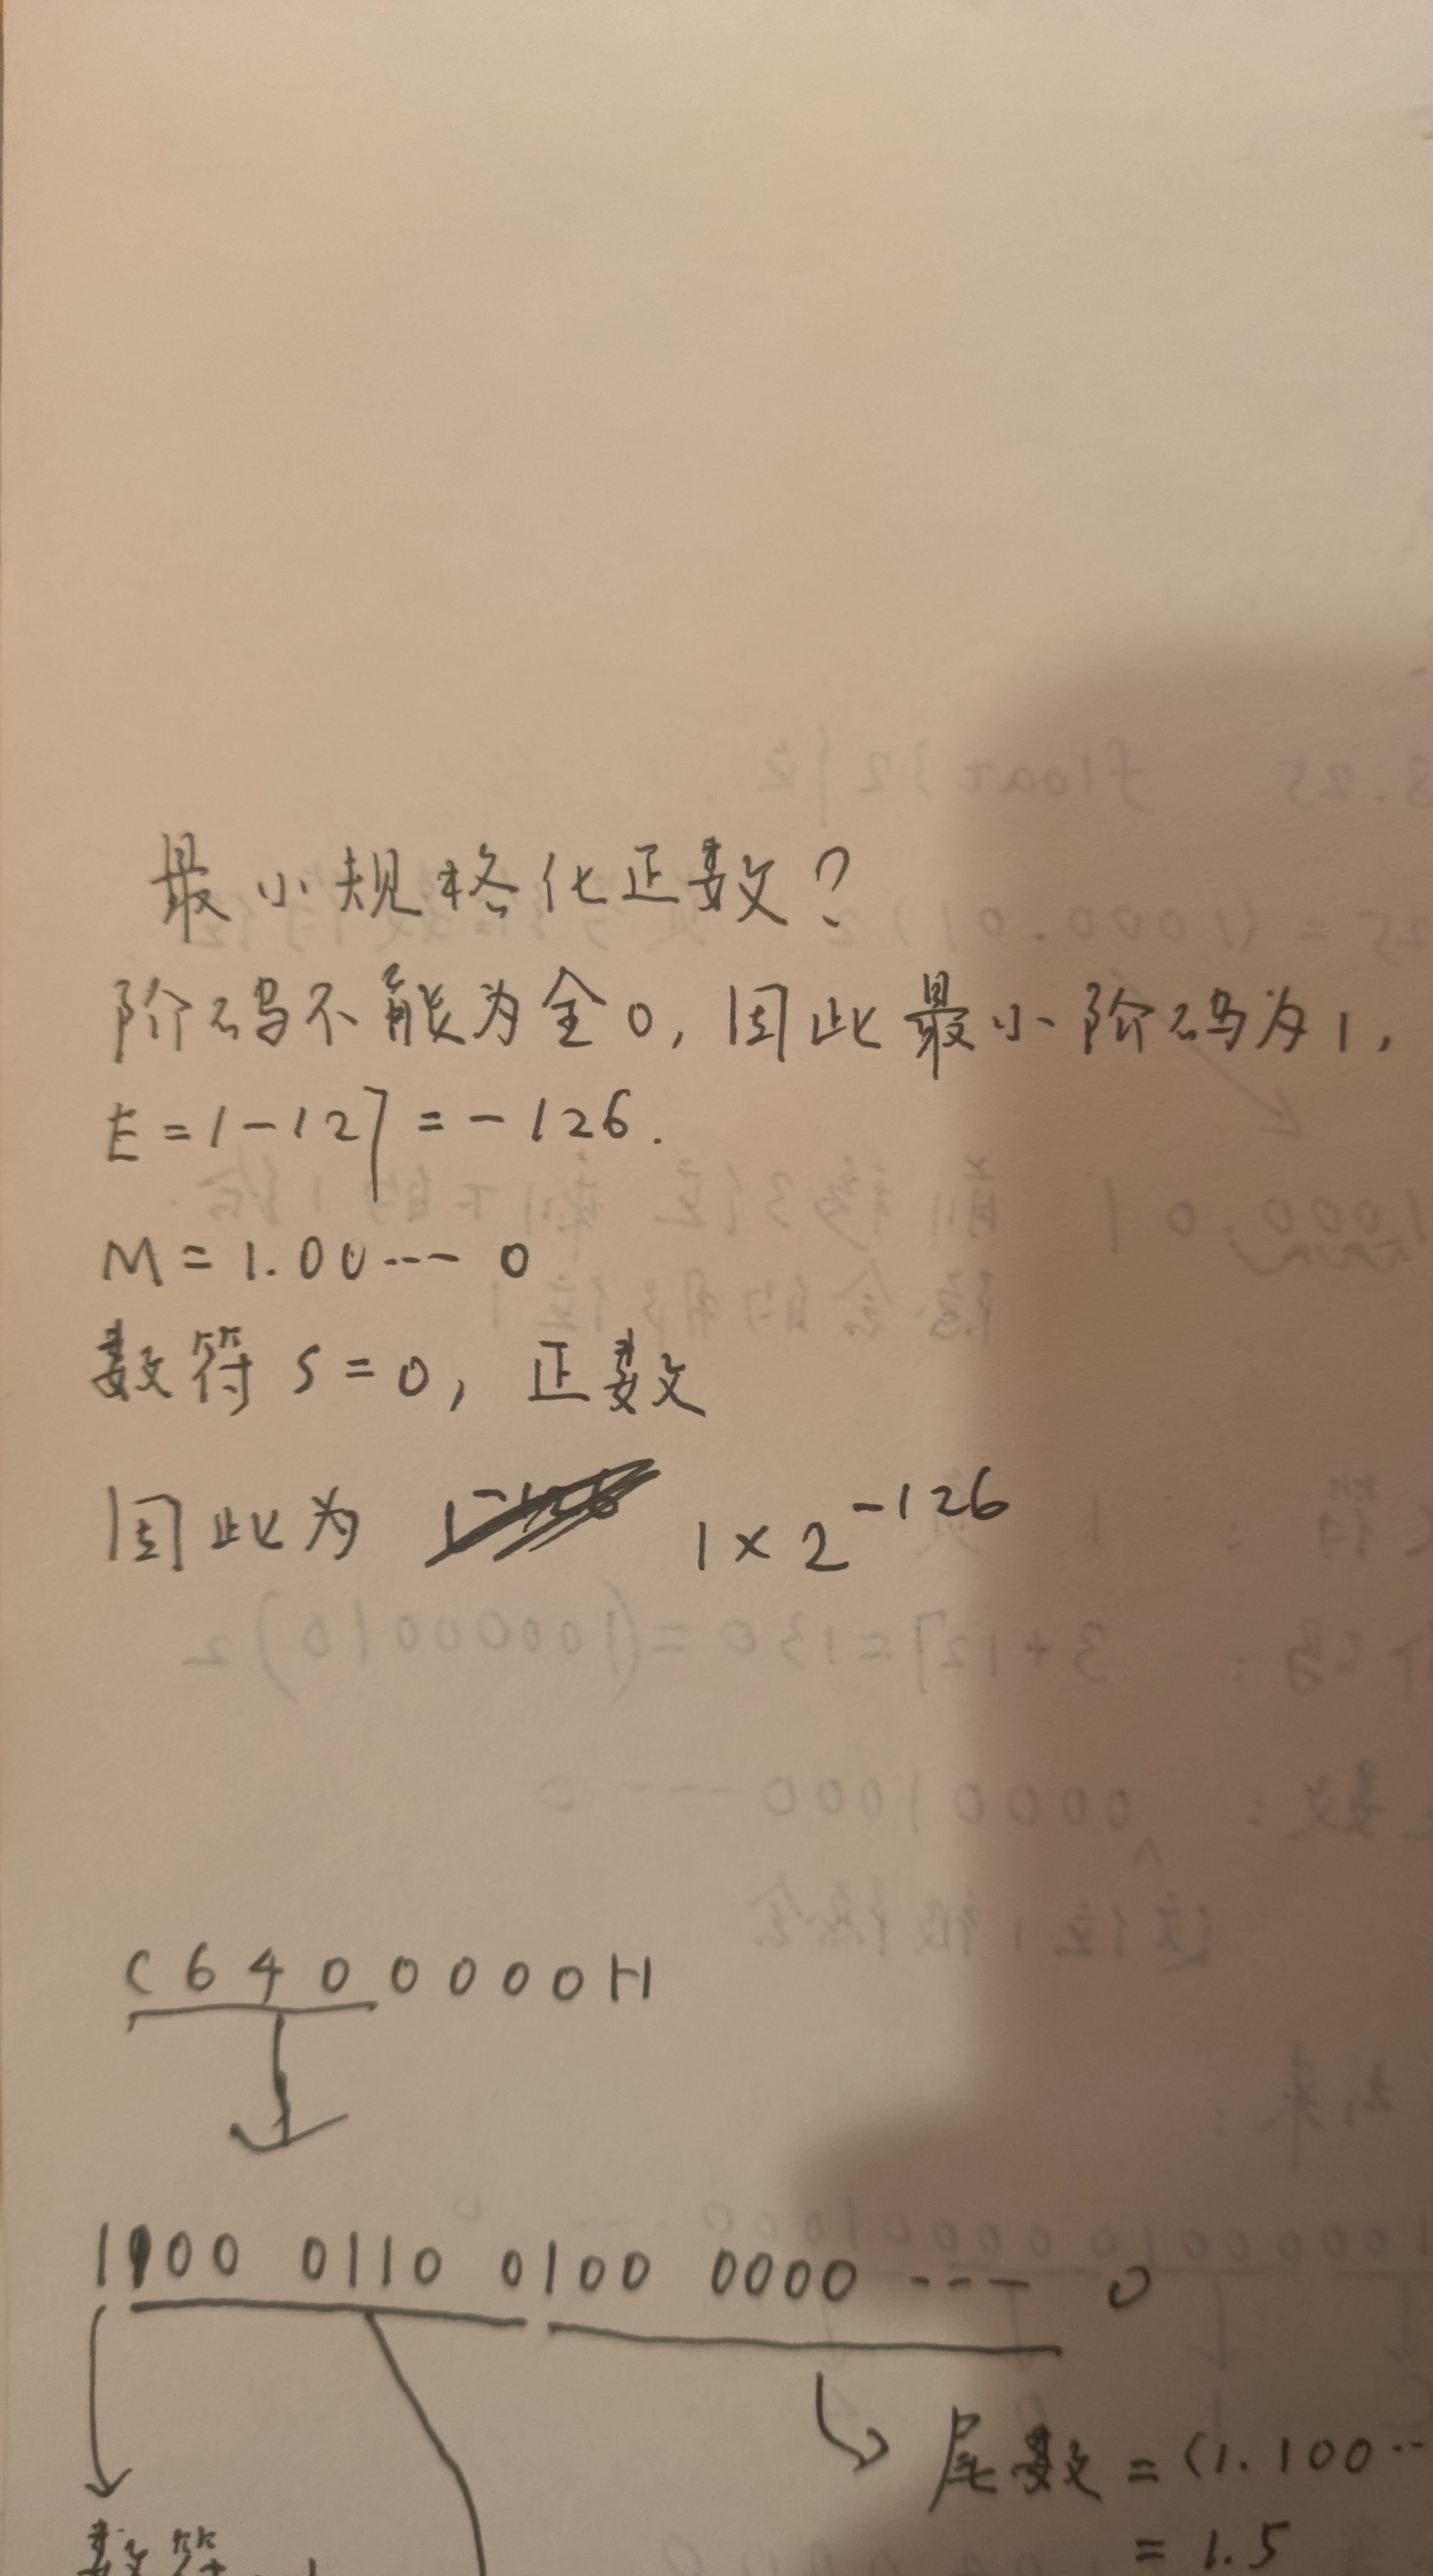 最小规格化正数?
阶码不能为全0,因此最小阶码为1,
E=1-127=-126.
M=1.00---0
数符S=0,正数
因此为 1×2^-126
C6400000H
1100 0110 0100 0000 --- 0
尾数=(1.100--
=1.5
数符